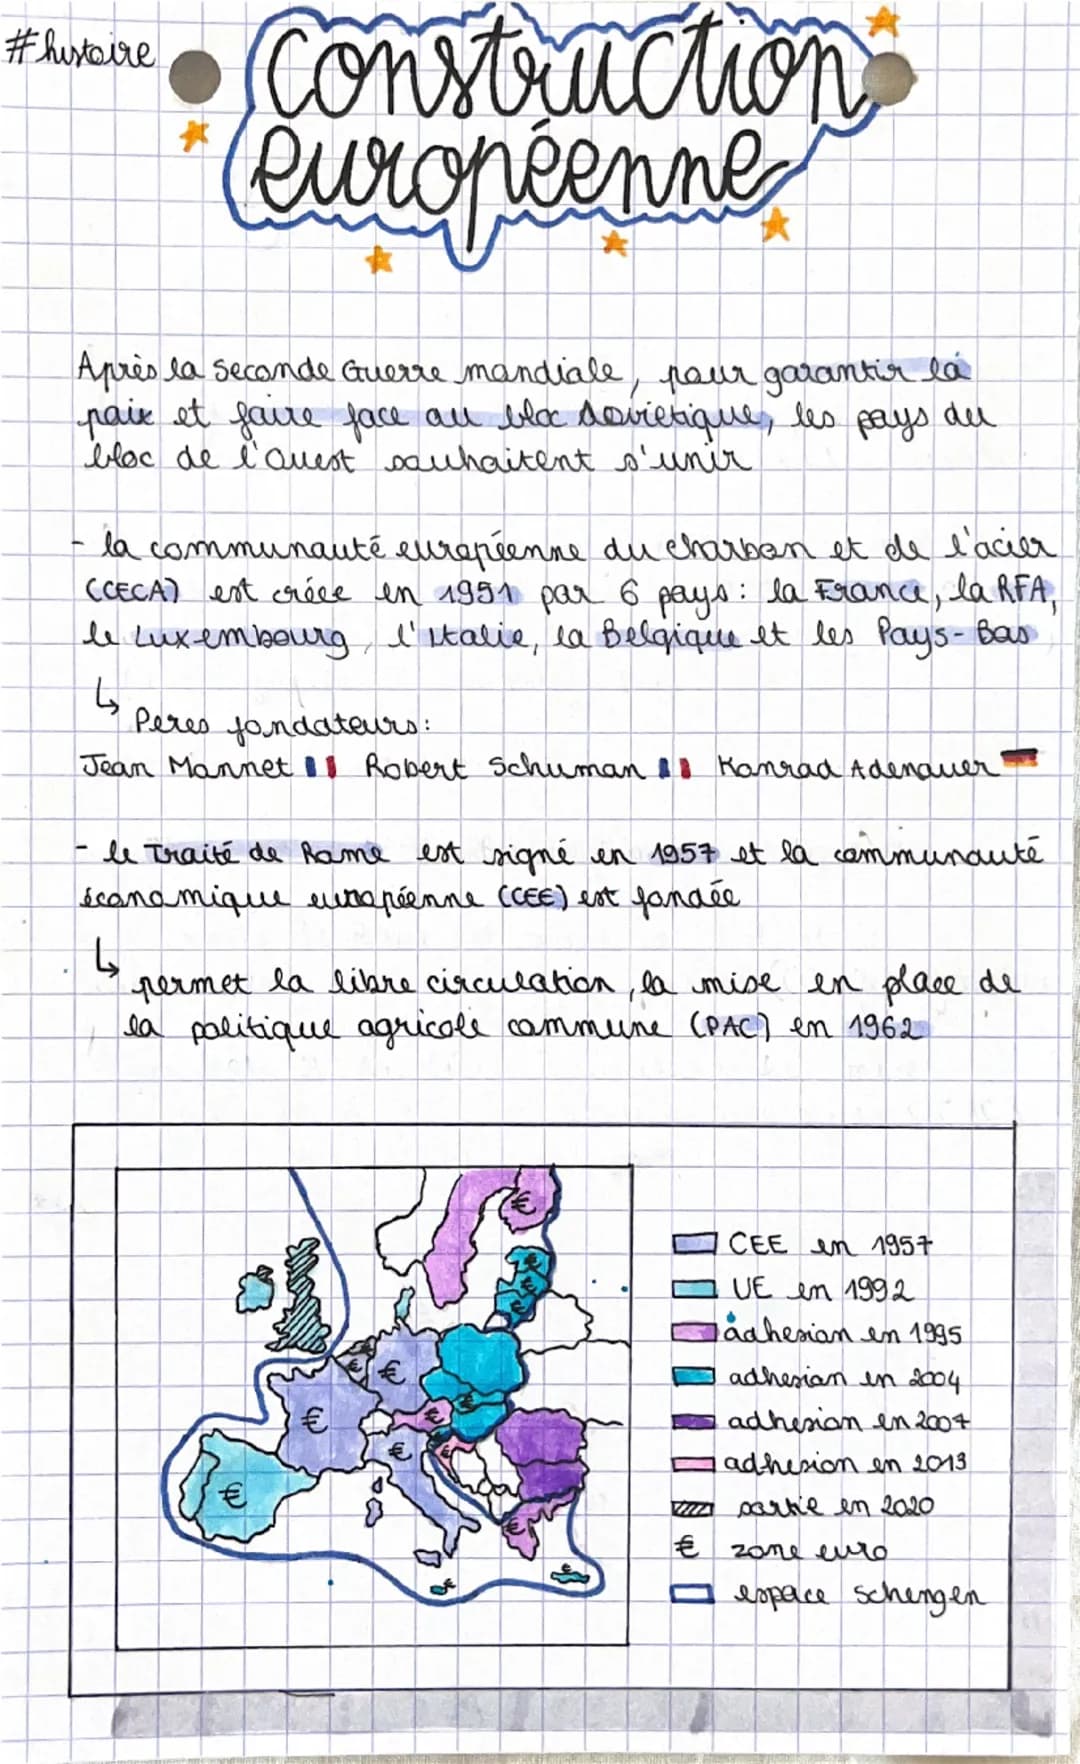 #histoire
construction
européenne
Après la seconde Guerre mondiale, pour garantir la
paix et faire face au bloc soviétique, les pays du
bloc de l'ouest souhaitent s'unir
- la communauté européenne du charbon et de l'acier
(CECA) est créée en 1951 par 6 pays : la France, la RFA,
le Luxembourg, l'Italie, la Belgique et les Pays-Bas
↳ Peres fondateurs :
Jean Monnet Robert Schuman Konrad Adenauer
- le Traité de Rome est signé en 1957 et la communauté
économique européenne (CEE) est fondée
↳ permet la libre circulation, la mise en place de
la politique agricole commune (PAC) en 1962
CEE en 1957
UE en 1992
adhesion en 1995
adhesion en 2004
adhesion en 2007
adhesion en 2013
partie en 2020
€ zone euro
espace schengen
€
€
€
€
€
€
€
€
€
€
€
€
€
€